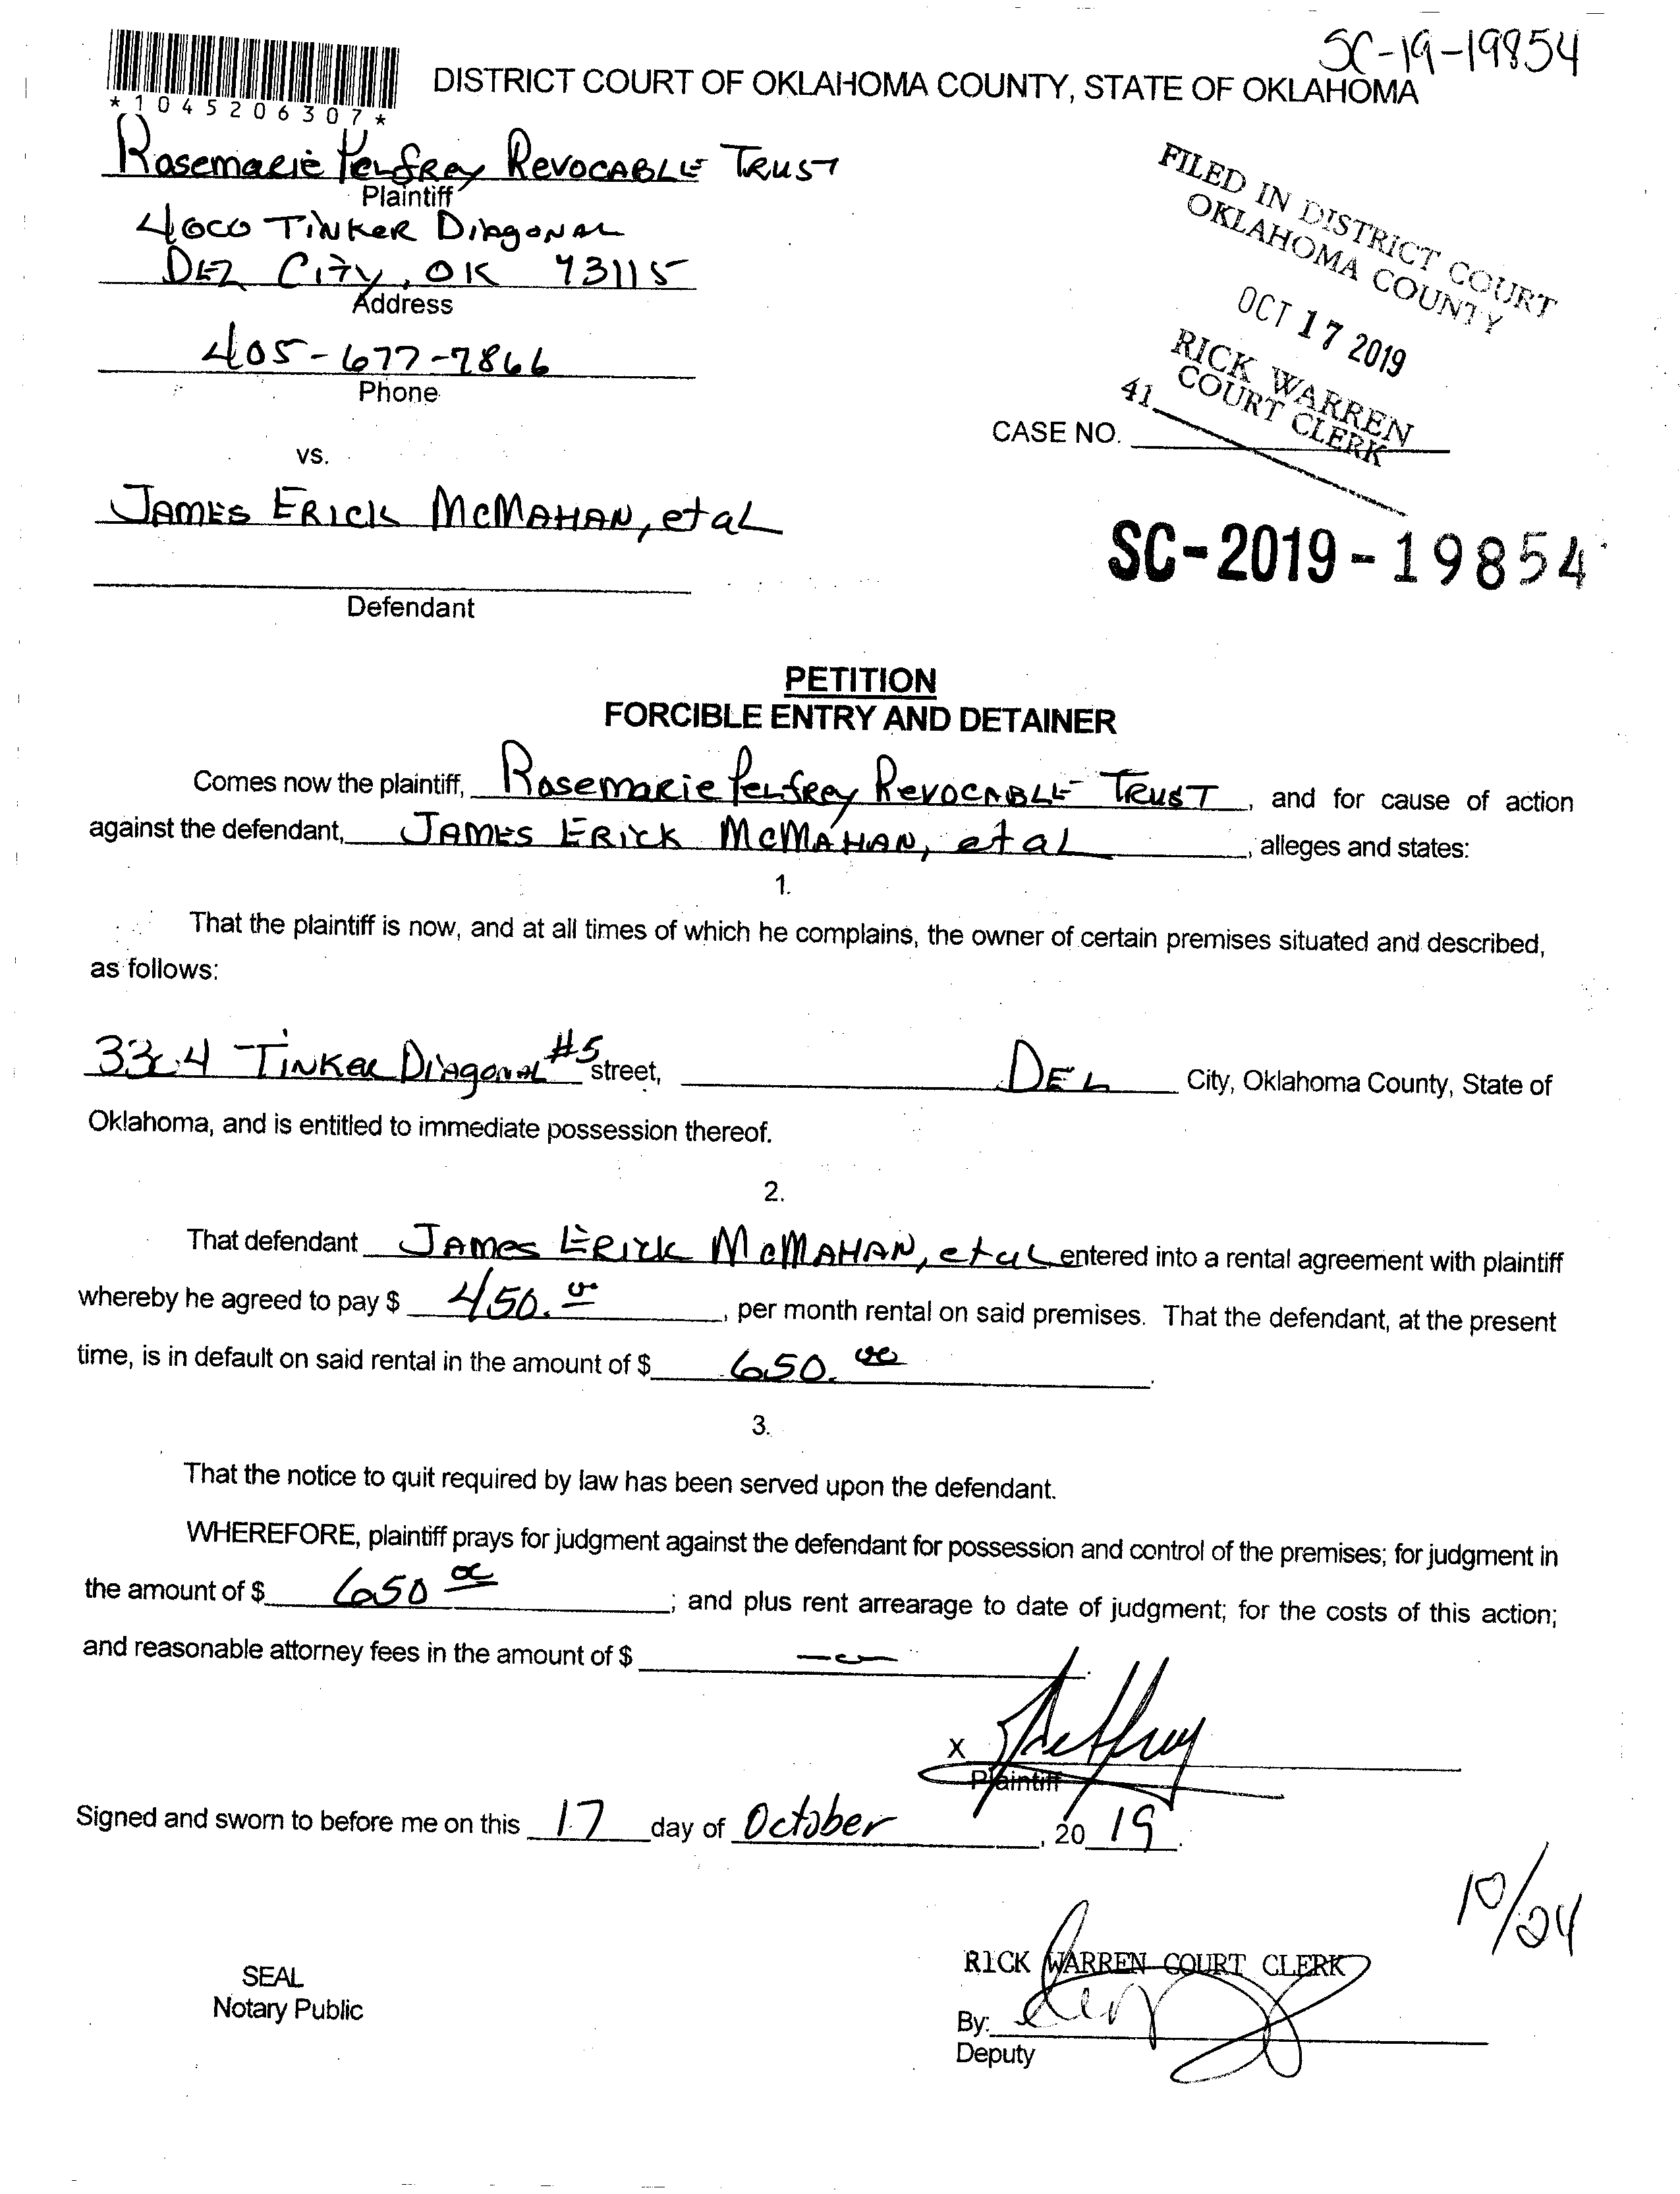 SC-19-19854
*1045206307*
DISTRICT COURT OF OKLAHOMA COUNTY, STATE OF OKLAHOMA
Rosemarie Pelfrey Revocable Trust
Plaintiff
4000 Tinker Diagonal
Del City, OK 73115
Address
405-677-7866
Phone
FILED IN DISTRICT COURT
OKLAHOMA COUNTY
OCT 17 2019
RICK WARREN
COURT CLERK
41
CASE NO.
vs.
James Erick McMahan, et al
SC-2019-19854
Defendant
PETITION
FORCIBLE ENTRY AND DETAINER
Comes now the plaintiff, Rosemarie Pelfrey Revocable Trust, and for cause of action
against the defendant, James Erick McMahan, et al, alleges and states:
1.
That the plaintiff is now, and at all times of which he complains, the owner of certain premises situated and described,
as follows:
3304 Tinker Diagonal #5 street, Del City, Oklahoma County, State of
Oklahoma, and is entitled to immediate possession thereof.
2.
That defendant James Erick McMahan, et al entered into a rental agreement with plaintiff
whereby he agreed to pay $ 450.00, per month rental on said premises. That the defendant, at the present
time, is in default on said rental in the amount of $ 650.00.
3.
That the notice to quit required by law has been served upon the defendant.
WHEREFORE, plaintiff prays for judgment against the defendant for possession and control of the premises; for judgment in
the amount of $ 650 00; and plus rent arrearage to date of judgment; for the costs of this action;
and reasonable attorney fees in the amount of $ -0-.
X
Plaintiff
Signed and sworn to before me on this 17 day of October, 20 19.
10/24
RICK WARREN COURT CLERK
SEAL
Notary Public
By:
Deputy